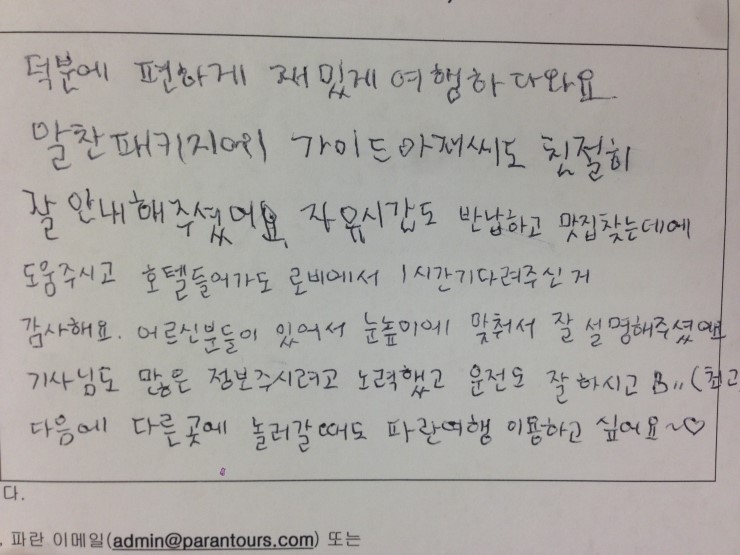 덕분에 편하게 재밌게 여행하다와요
알찬패키지에 가이드아재씨도 친절히
잘 안내해주셨어요 자유시간도 반납하고 맛집찾는데에
도움주시고 호텔들어가도 로비에서 1시간기다려주신거
감사해요. 어르신분들이 있어서 눈높이에 맞춰서 잘 설명해주셨어요
기사님도 많은 정보주시려고 노력했고 운전도 잘하시고 (최고
다음에 다른곳에 놀러갈때도 파란여행 이용하고 싶어요~♡
다.
. 파란 이메일(admin@parantours.com) 또는